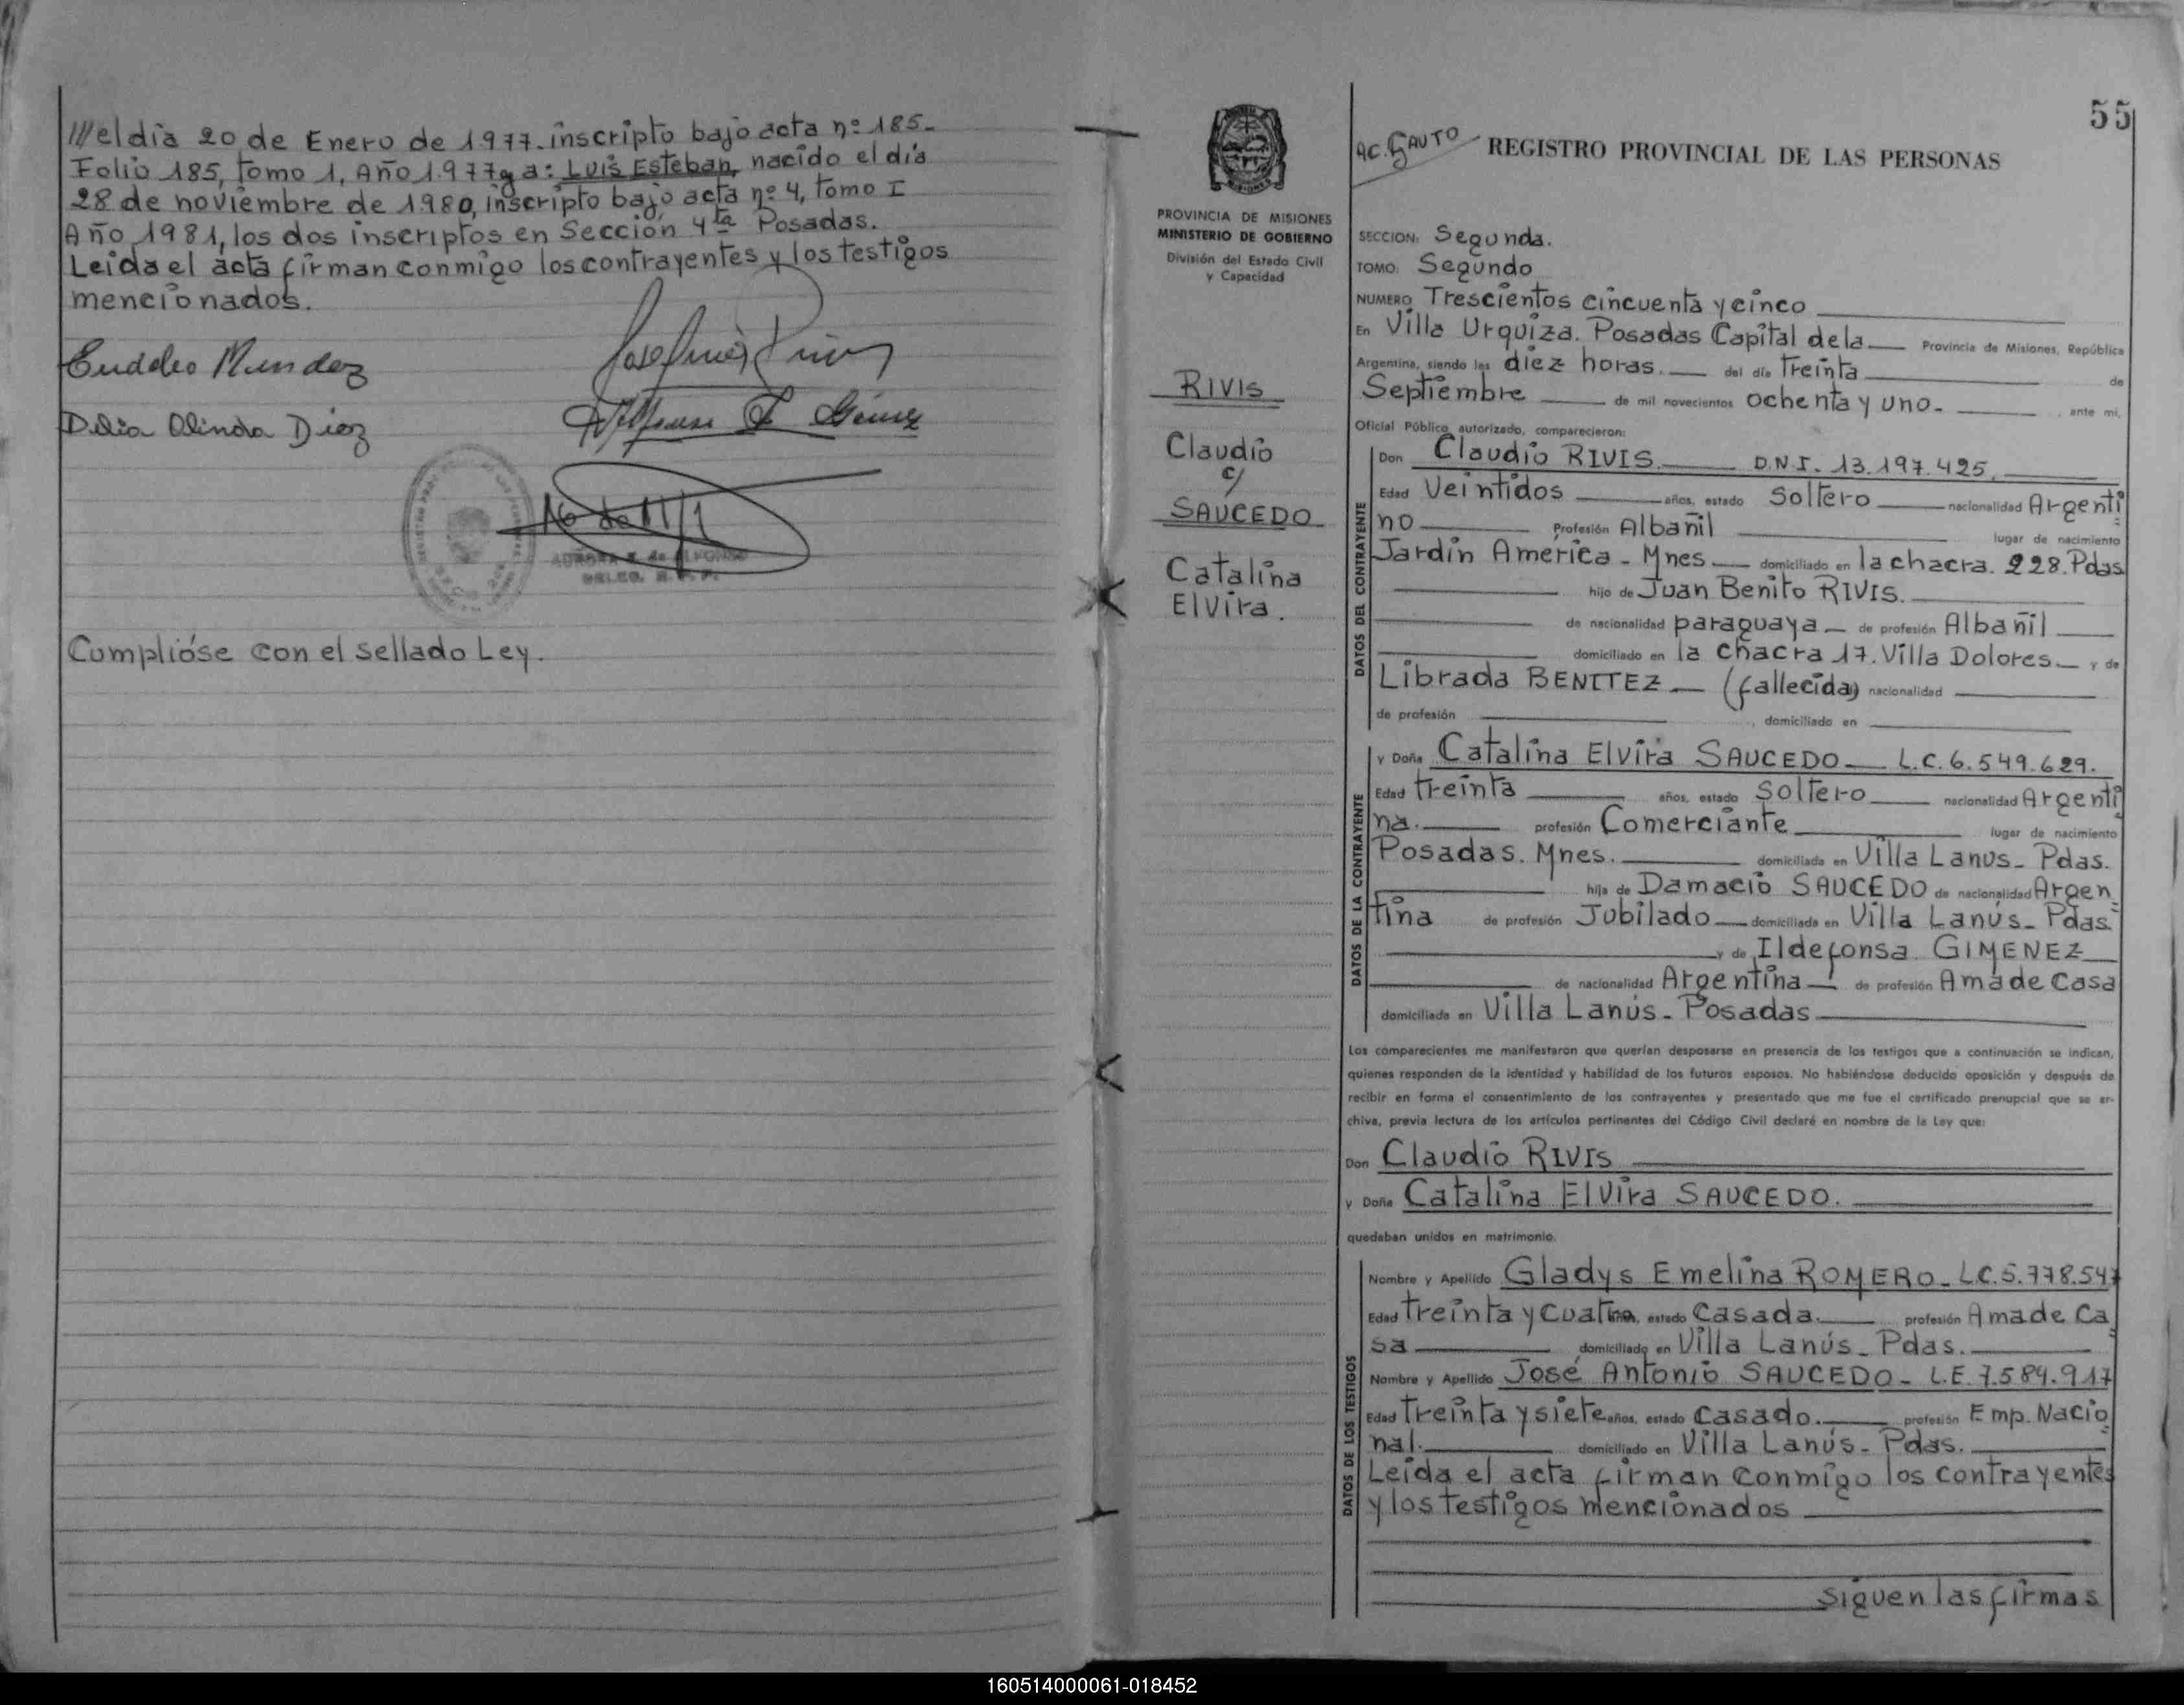 ///el día 20 de Enero de 1977. inscripto bajo acta nº 185-
Folio 185, tomo 1, Año 1.977 y a: Luis Esteban, nacido el día
28 de noviembre de 1980, inscripto bajo acta nº 4, tomo I
Año 1981, los dos inscriptos en Sección 4ta Posadas.
Leída el acta firman conmigo los contrayentes y los testigos
mencionados.
Delia Olinda Diez
Cumplióse con el sellado Ley.
55
PROVINCIA DE MISIONES
MINISTERIO DE GOBIERNO
División del Estado Civil
y Capacidad
RIVIS
Claudio
c/
SAUCEDO
Catalina
Elvira.
AC. GAUTO
REGISTRO PROVINCIAL DE LAS PERSONAS
SECCION: Segunda.
TOMO: Segundo
NUMERO Trescientos cincuenta y cinco
En Villa Urquiza. Posadas Capital de la Provincia de Misiones, República
Argentina, siendo las diez horas. del día Treinta de
Septiembre de mil novecientos ochenta y uno. , ante mí,
Oficial Público autorizado, comparecieron:
DATOS DEL CONTRAYENTE
Don Claudio RIVIS. D.N.I. 13.197.425,
Edad Veintidos años, estado Soltero nacionalidad Argenti
no Profesión Albañil lugar de nacimiento
Jardín América - Mnes. domiciliado en la chacra. 228. Pdas
hijo de Juan Benito RIVIS.
de nacionalidad paraguaya de profesión Albañil
domiciliado en la chacra 17. Villa Dolores. y de
Librada BENITEZ (fallecida) nacionalidad
de profesión , domiciliado en
DATOS DE LA CONTRAYENTE
y Doña Catalina Elvira SAUCEDO L.C. 6.549.629.
Edad treinta años, estado Soltero nacionalidad Argenti
na. profesión Comerciante lugar de nacimiento
Posadas. Mnes. domiciliada en Villa Lanus - Pdas.
hija de Damacio SAUCEDO de nacionalidad Argen
tina de profesión Jubilado domiciliada en Villa Lanús - Pdas.
y de Ildefonsa GIMENEZ
de nacionalidad Argentina de profesión Ama de Casa
domiciliada en Villa Lanús - Posadas
Los comparecientes me manifestaron que querían desposarse en presencia de los testigos que a continuación se indican,
quienes responden de la identidad y habilidad de los futuros esposos. No habiéndose deducido oposición y después de
recibir en forma el consentimiento de los contrayentes y presentado que me fue el certificado prenupcial que se ar-
chiva, previa lectura de los artículos pertinentes del Código Civil declaré en nombre de la Ley que:
Don Claudio RIVIS
y Doña Catalina Elvira SAUCEDO.
quedaban unidos en matrimonio.
DATOS DE LOS TESTIGOS
Nombre y Apellido Gladys Emelina ROMERO - L.C. 5.778.547
Edad treinta y cuatro años, estado Casada. profesión Ama de Ca
sa domiciliado en Villa Lanús - Pdas.
Nombre y Apellido José Antonio SAUCEDO - L.E. 7.584.917
Edad treinta y siete años, estado Casado. profesión Emp. Nacio
nal. domiciliado en Villa Lanús - Pdas.
Leída el acta firman conmigo los contrayentes
y los testigos mencionados
Siguen las firmas
160514000061-018452